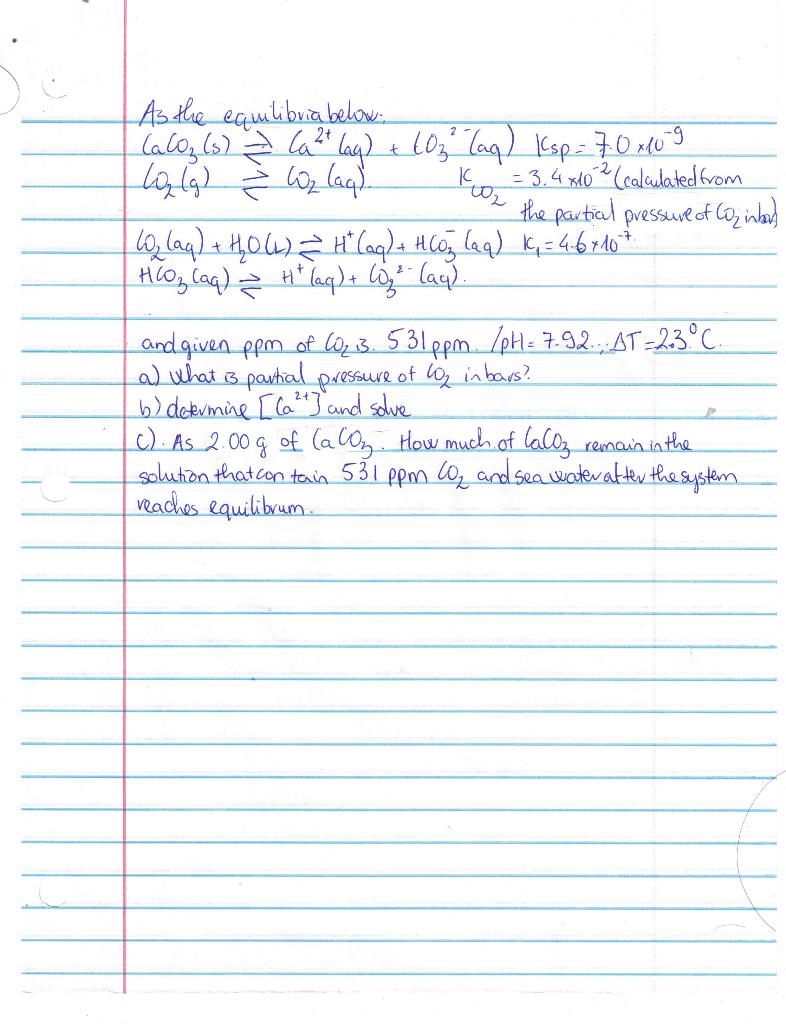 As the equilibria below.
CaCO₃ (s) ⇌ Ca²⁺ (aq) + CO₃²⁻ (aq) Ksp = 7.0 x10⁻⁹
CO₂ (g) ⇌ CO₂ (aq). K_CO₂ = 3.4 x10⁻² (calculated from
the partial pressure of CO₂ in bar)
CO₂ (aq) + H₂O (L) ⇌ H⁺ (aq) + HCO₃⁻ (aq) K₁ = 4.6 x 10⁻⁷.
HCO₃ (aq) ⇌ H⁺ (aq) + CO₃²⁻ (aq).
and given ppm of CO₂ is. 531 ppm. / pH = 7.92.., ΔT = 2.3°C.
a) what is partial pressure of CO₂ in bars?
b) determine [Ca²⁺] and solve
C). As 2.00 g of CaCO₃. How much of CaCO₃ remain in the
solution that con tain 531 ppm CO₂ and sea water after the system
reaches equilibrum.